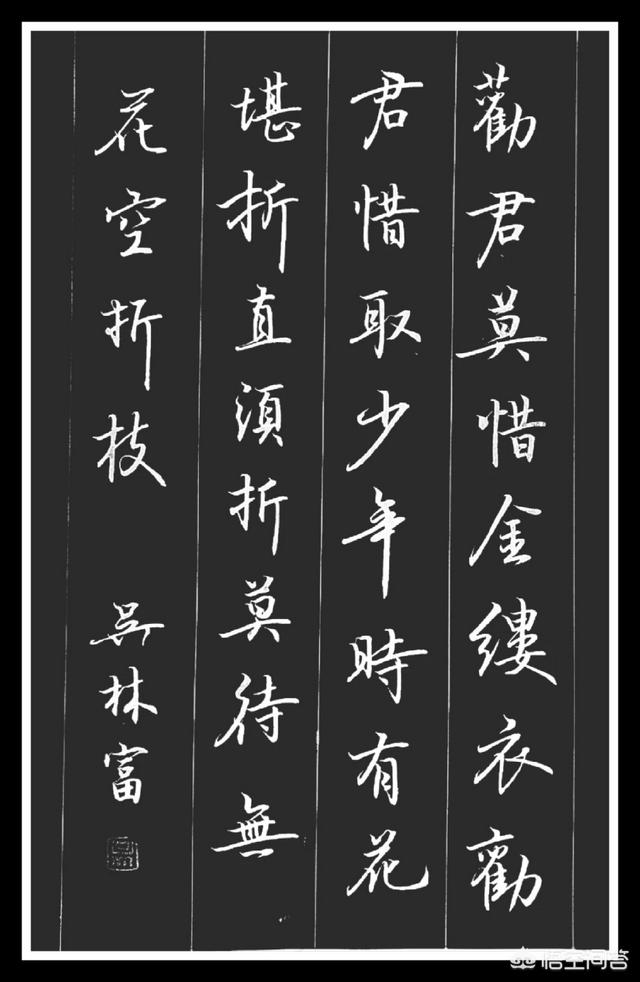 勸君莫惜金縷衣勸
君惜取少年時有花
堪折直須折莫待無
花空折枝 吳林富
悟空问答